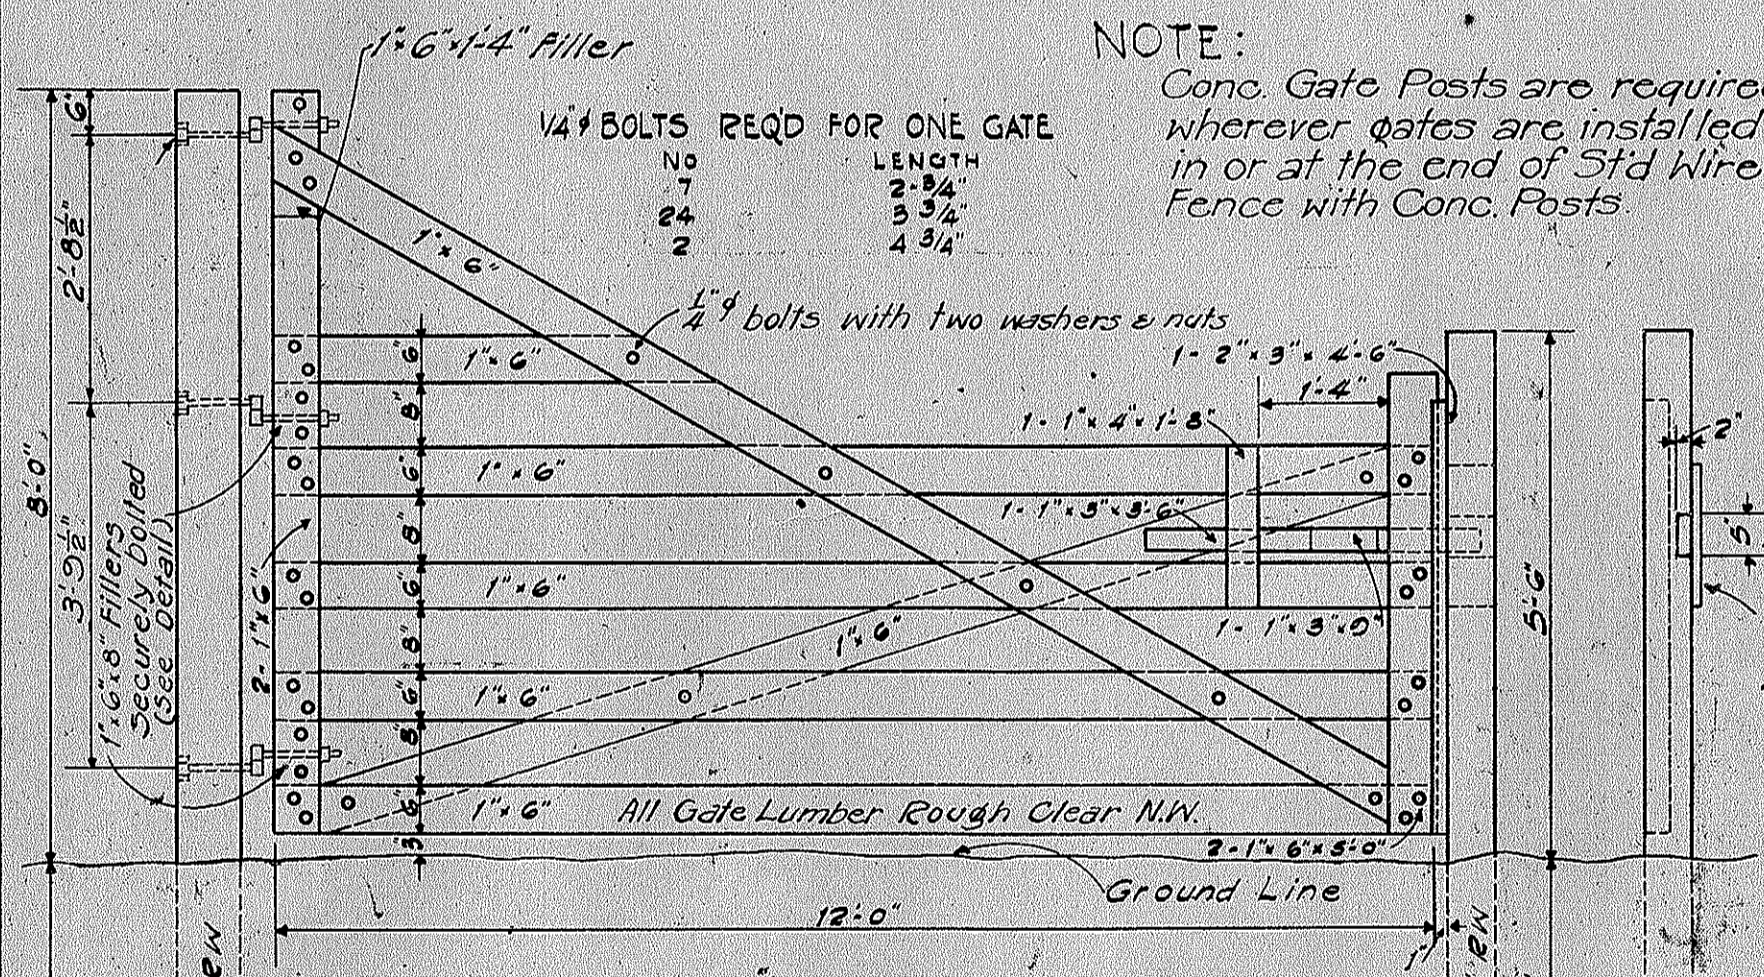 1"x6"x1'-4" Filler
NOTE:
Conc. Gate Posts are require
wherever gates are installed
in or at the end of St'd Wire
Fence with Conc. Posts.
1/4"ϕ BOLTS REQ'D FOR ONE GATE
NO LENGTH
7 2-3/4"
24 3 3/4"
2 4 3/4"
6"
2'-8½"
8'-0"
3'-9½"
1"x6"x8" Fillers
Securely bolted
(See Detail)
2-1"x6"
1"x6"
¼"ϕ bolts with two washers & nuts
6"
1"x6"
8"
6"
1"x6"
8"
6"
1"x6"
8"
6"
1"x6"
8"
6"
1"x6"
3"
1"x6"
1-2"x3"x4'-6"
1'-4"
1-1"x4"x1'-8"
1-1"x3"x3'-6"
1-1"x3"x9"
2"
5"
5'-6"
All Gate Lumber Rough Clear N.W.
2-1"x6"x5'-0"
Ground Line
12'-0"
1"